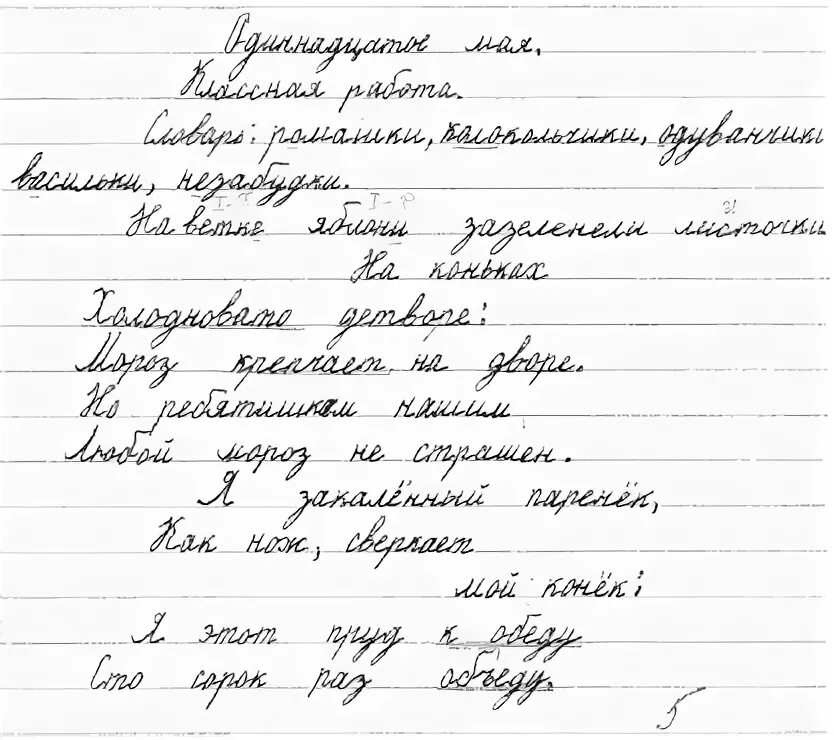 Одиннадцатое мая.
Классная работа.
Словарь: ромашки, колокольчики, одуванчики
васильки, незабудки.
I-
I-Р
и
На ветке яблони зазеленели листочки
На коньках
Холодновато детворе:
Мороз крепчает на дворе.
Но ребятишкам нашим
Любой мороз не страшен.
Я закалённый паренёк,
Как нож, сверкает
мой конёк:
Я этот пруд к обеду
Сто сорок раз объеду.
5